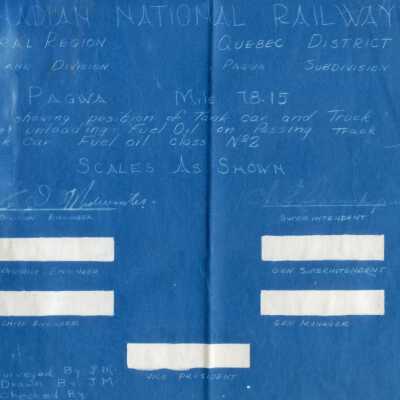 ADIAN NATIONAL RAILWAY
RAL REGION QUEBEC DISTRICT
AND DIVISION PAGWA SUBDIVISION
PAGWA MILE 78.15
showing position of Tank car and Truck
unloading Fuel Oil on Passing Track
k Car Fuel oil class Nº2
SCALES AS SHOWN
DIVISION ENGINEER SUPERINTENDENT
ENGINEER GEN SUPERINTENDENT
CHIEF ENGINEER GEN MANAGER
VICE PRESIDENT
urveyed By J.M.
Drawn By J.M
Checked By